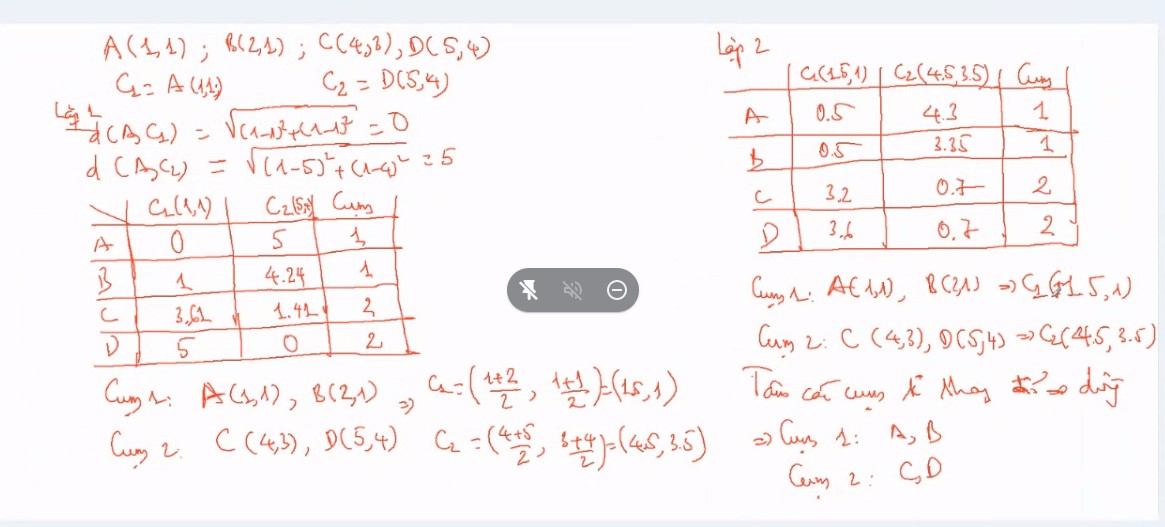 A(1,1) ; B(2,1) ; C(4,3), D(5,4)
C₁ = A(1,1) C₂ = D(5,4)
Lặp 1
d(A,C₁) = √(1-1)²+(1-1)² = 0
d(A,C₂) = √(1-5)²+(1-4)² = 5
C₁(1,1) C₂(5,4) Cụm
A 0 5 1
B 1 4.24 1
C 3,61 1.41 2
D 5 0 2
Cụm 1: A(1,1), B(2,1) ⇒ C₁ = (1+2/2, 1+1/2) = (1.5, 1)
Cụm 2: C(4,3), D(5,4) C₂ = (4+5/2, 3+4/2) = (4.5, 3.5)
Lặp 2
C₁(1.5,1) C₂(4.5,3.5) Cụm
A 0.5 4.3 1
B 0.5 3.35 1
C 3.2 0.7 2
D 3.6 0.7 2
Cụm 1: A(1,1), B(2,1) ⇒ C₁(1.5,1)
Cụm 2: C(4,3), D(5,4) ⇒ C₂(4.5,3.5)
Tâm các cụm k thay đổi ⇒ dừng
⇒ Cụm 1: A, B
Cụm 2: C, D